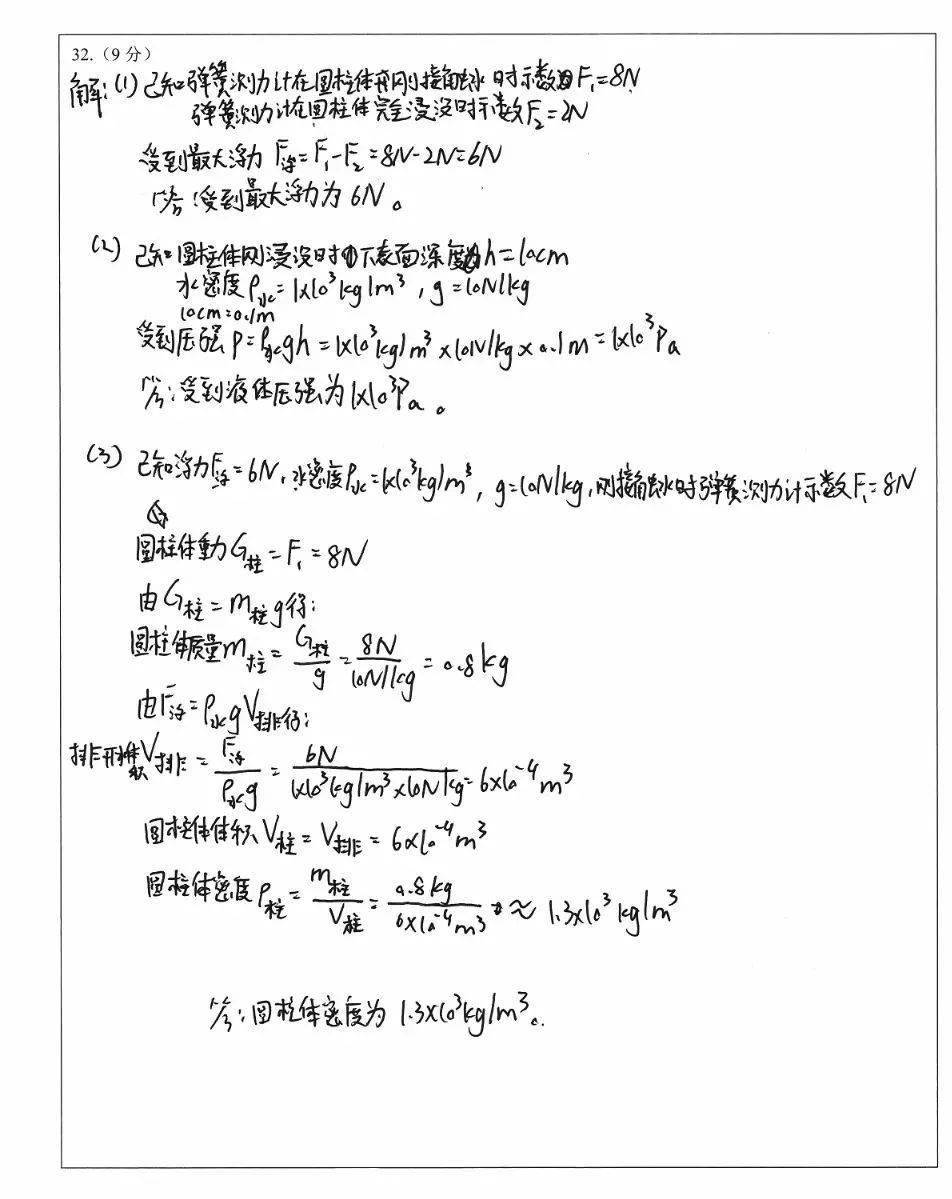 32.（9分）
解：(1) 已知弹簧测力计在圆柱体刚接触水时示数为F₁=8N
弹簧测力计在圆柱体完全浸没时示数F₂=2N
受到最大浮力 F浮=F₁-F₂=8N-2N=6N
答：受到最大浮力为6N。
(2) 已知圆柱体刚浸没时下表面深度为h=10cm
水密度ρ水=1×10³kg/m³，g=10N/kg
10cm=0.1m
受到压强P=ρ水gh=1×10³kg/m³×10N/kg×0.1m=1×10³Pa
答：受到液体压强为1×10³Pa。
(3) 已知浮力F浮=6N，水密度ρ水=1×10³kg/m³，g=10N/kg，刚接触水时弹簧测力计示数F₁=8N
圆柱体重力G柱=F₁=8N
由G柱=m柱g得：
圆柱体质量m柱=G柱/g=8N/10N/kg=0.8kg
由F浮=ρ水gV排得：
排开体积V排=F浮/ρ水g=6N/1×10³kg/m³×10N/kg=6×10⁻⁴m³
圆柱体体积V柱=V排=6×10⁻⁴m³
圆柱体密度ρ柱=m柱/V柱=0.8kg/6×10⁻⁴m³≈1.3×10³kg/m³
答：圆柱体密度为1.3×10³kg/m³。